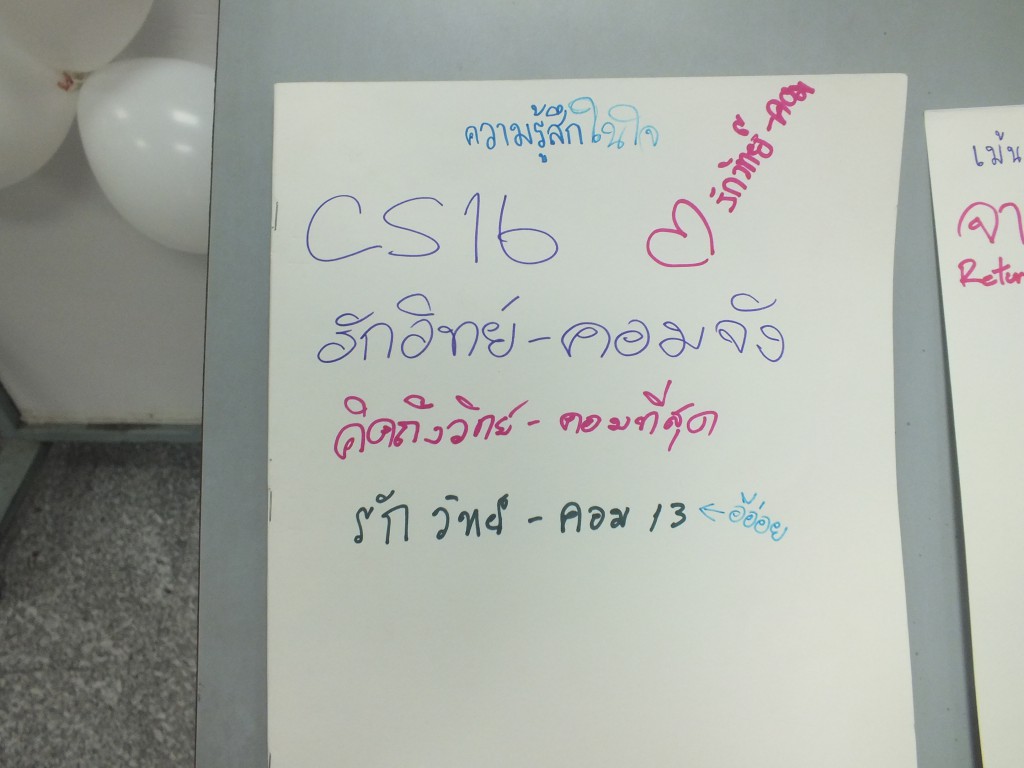 ความรู้สึกในใจ
รักวิทย์-คอม
CS16
รักวิทย์-คอมจัง
คิดถึงวิทย์-คอมที่สุด
รัก วิทย์ - คอม 13 ←
เม้น
จา
Retur